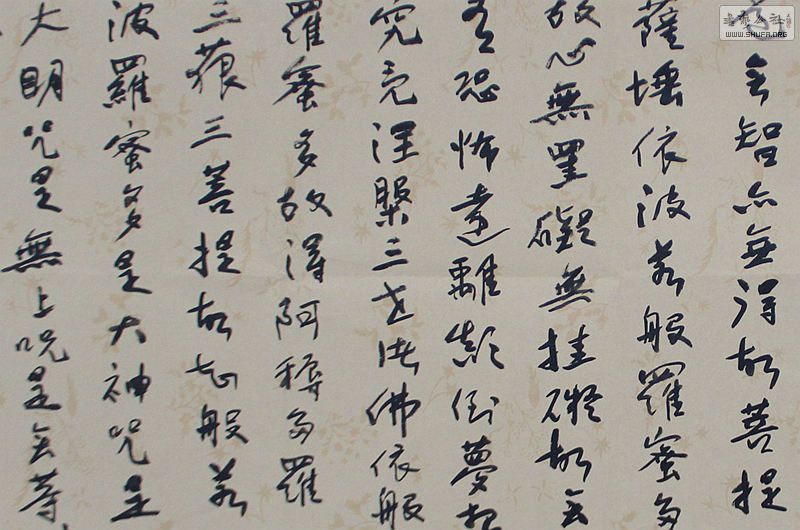 无智亦無得故菩提
薩埵依波若般羅蜜多
故心無罣礙無挂礙故无
有恐怖遠離顛倒夢想
究竟涅槃三世諸佛依般
羅蜜多故得阿耨多羅
三藐三菩提故知般若
波羅蜜多是大神咒是
大明咒是無上呪是无等
WWW.SHUFA.ORG